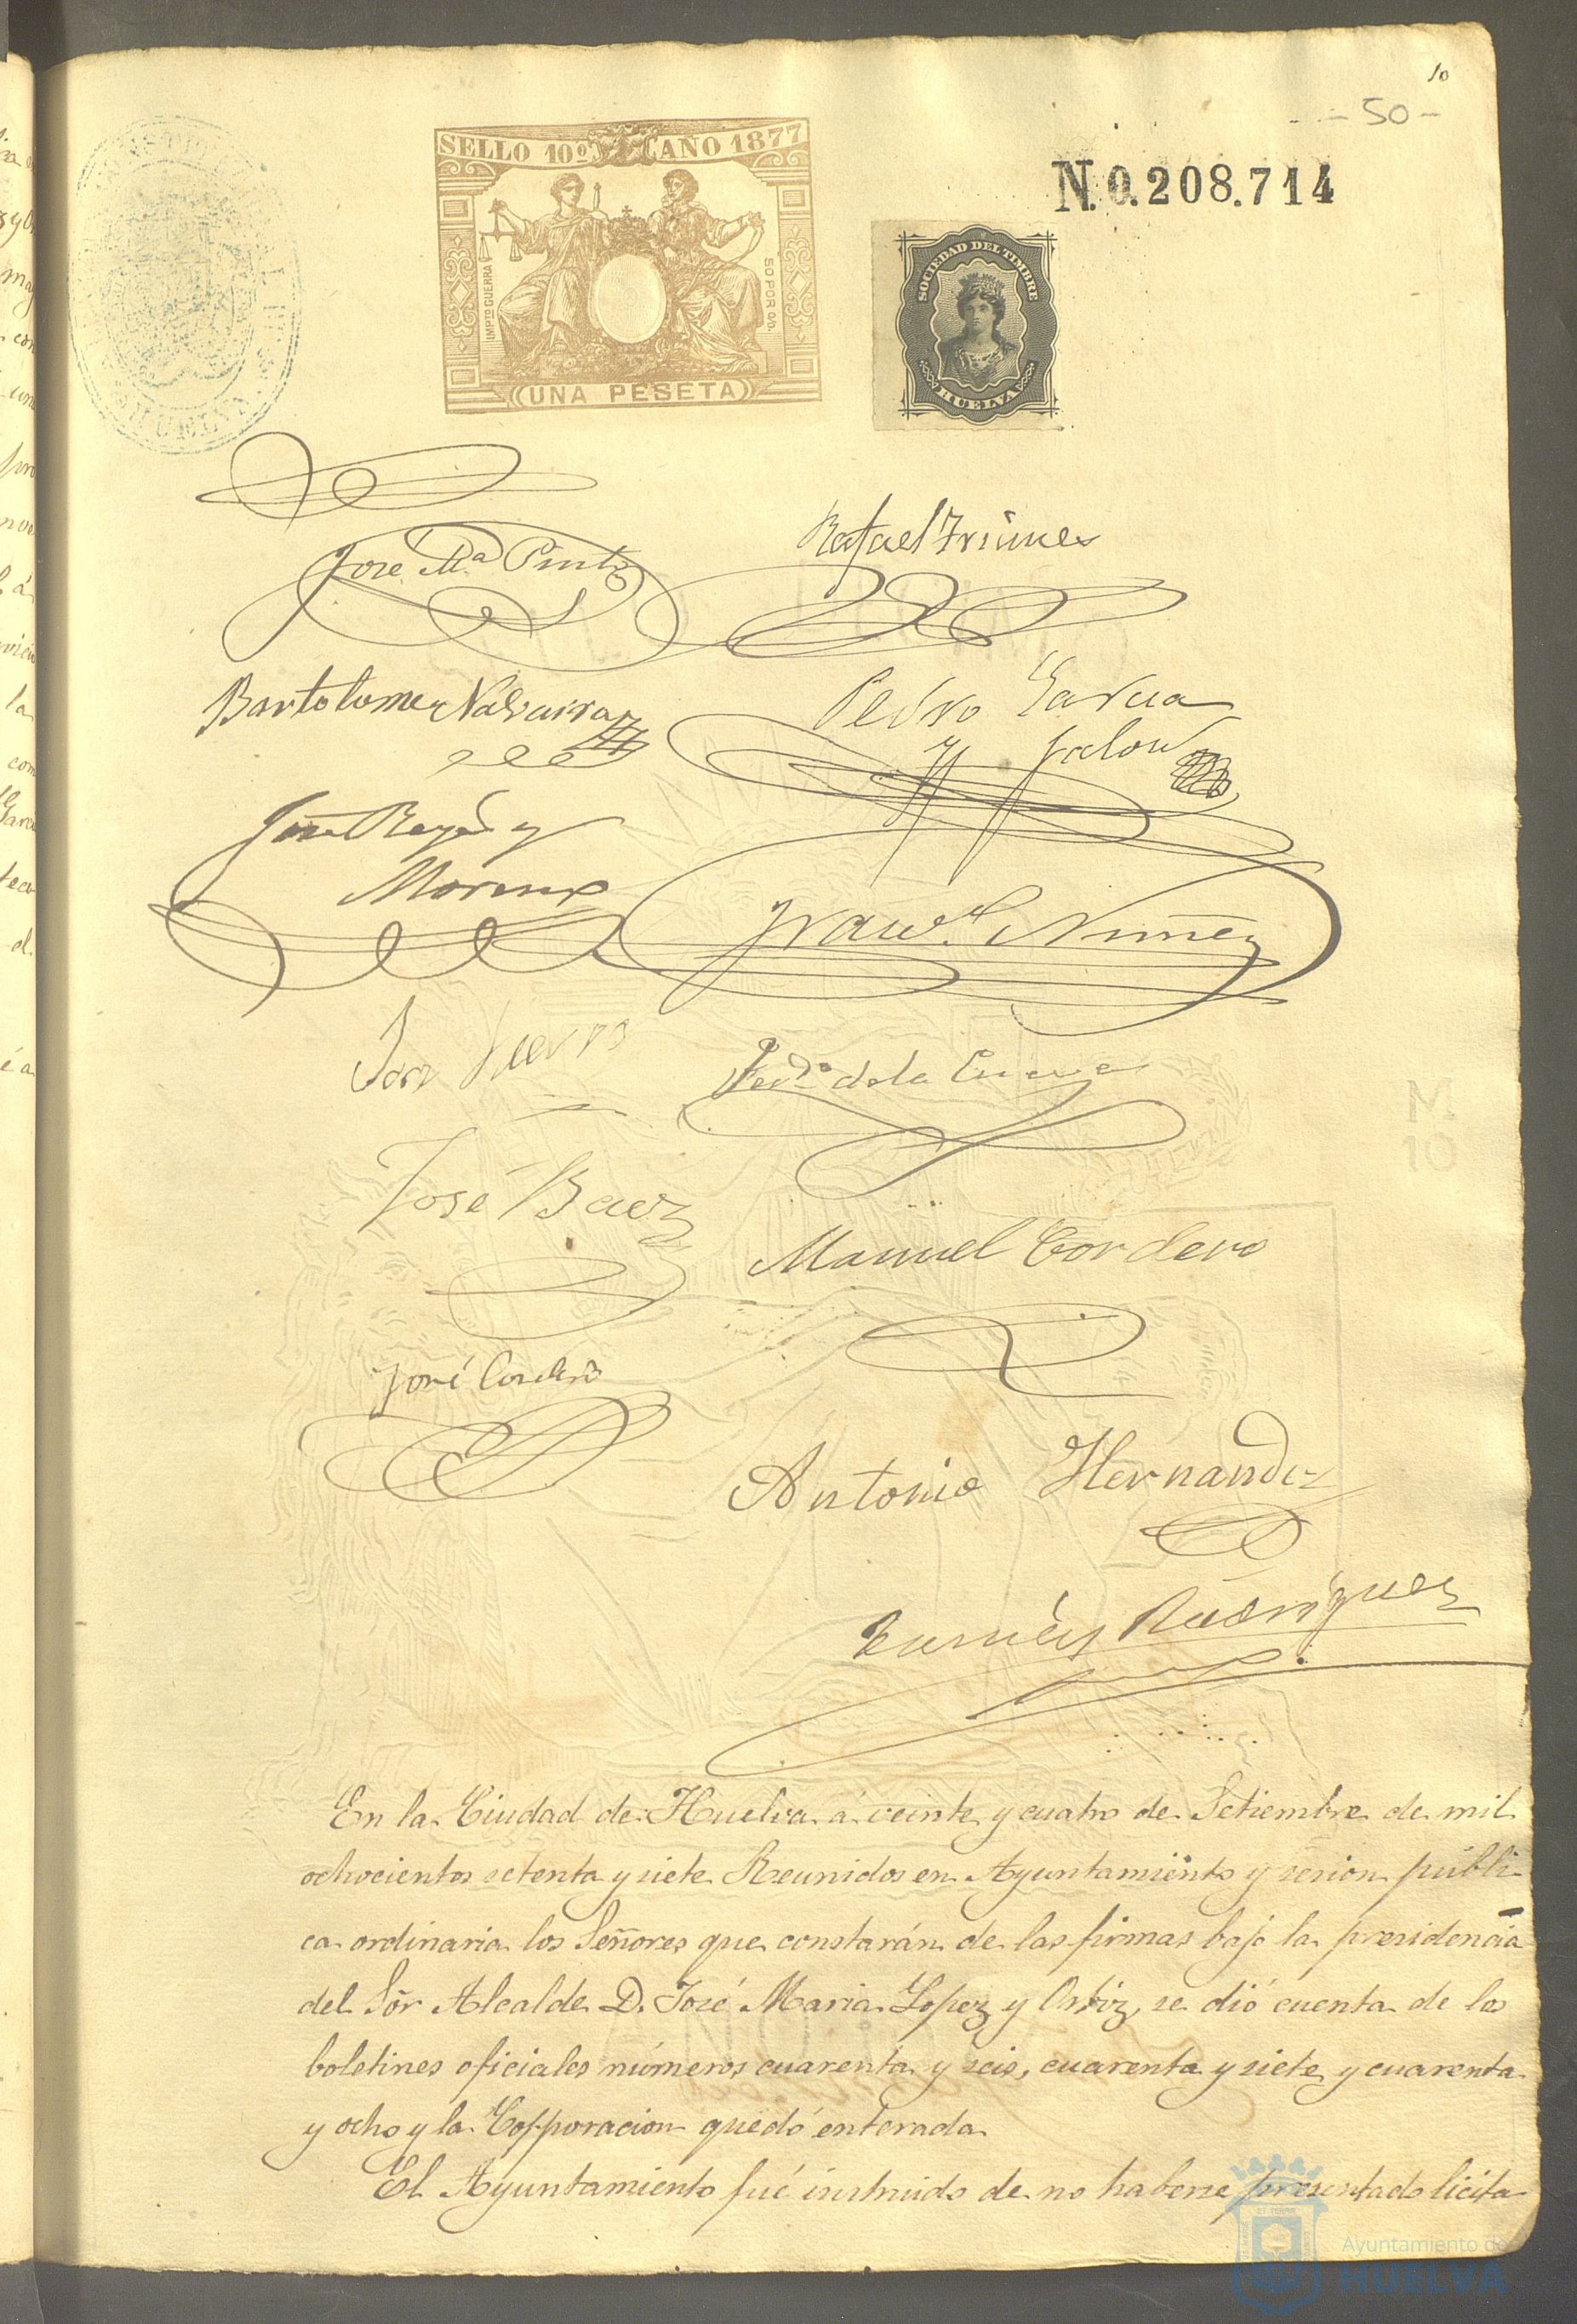 10
- 50 -
SELLO 10º AÑO 1877
IMPTO GUERRA
50 POR 0/0
UNA PESETA
N. 0.208.714
SOCIEDAD DEL TIMBRE
HUELVA
José Mª
Rafael
Bartolome Navarro
Pedro Garcia
y Jalon
José y
Moreno
Franco. Nuñez
Pedro de la Cueva
José Baez
Manuel Cordero
José Cordero
Antonio Hernandez
Rodriguez
M
10
En la Ciudad de Huelva á veinte y cuatro de Setiembre de mil
ochocientos setenta y siete Reunidos en Ayuntamiento y sesion públi-
ca ordinaria los Señores que constarán de las firmas bajo la presidencia
del Sōr Alcalde D. José Maria Lopez y Ortiz, se dió cuenta de los
boletines oficiales números cuarenta y seis, cuarenta y siete y cuarenta
y ocho y la Corporacion quedó enterada
El Ayuntamiento fué instruido de no haberse presentado licita-
Ayuntamiento de
HUELVA